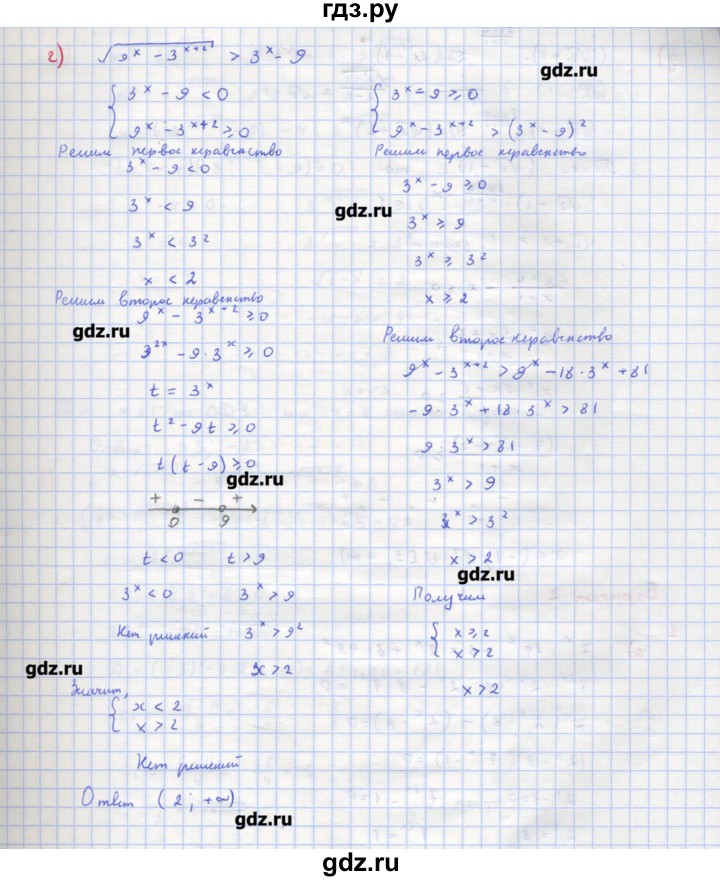 гдз.ру
г) √(9ˣ − 3ˣ⁺²) > 3ˣ − 9
gdz.ru
{ 3ˣ − 9 < 0
9ˣ − 3ˣ⁺² ≥ 0
Решим первое неравенство
3ˣ − 9 < 0
3ˣ < 9
3ˣ < 3²
x < 2
Решим второе неравенство
9ˣ − 3ˣ⁺² ≥ 0
gdz.ru
3²ˣ − 9·3ˣ ≥ 0
t = 3ˣ
t² − 9t ≥ 0
t(t − 9) ≥ 0
gdz.ru
+ − +
0 9
t < 0 t > 9
3ˣ < 0 3ˣ > 9
Нет решений 3ˣ > 9²
x > 2
gdz.ru
Значит,
{ x < 2
x > 2
Нет решений
Ответ (2; +∞)
gdz.ru
{ 3ˣ − 9 ≥ 0
9ˣ − 3ˣ⁺² > (3ˣ − 9)²
Решим первое неравенство
3ˣ − 9 ≥ 0
gdz.ru
3ˣ ≥ 9
3ˣ ≥ 3²
x ≥ 2
Решим второе неравенство
9ˣ − 3ˣ⁺² > 9ˣ − 18·3ˣ + 81
−9·3ˣ + 18·3ˣ > 81
9·3ˣ > 81
3ˣ > 9
3ˣ > 3²
x > 2
gdz.ru
Получим
{ x ≥ 2
x > 2
x > 2
gdz.ru